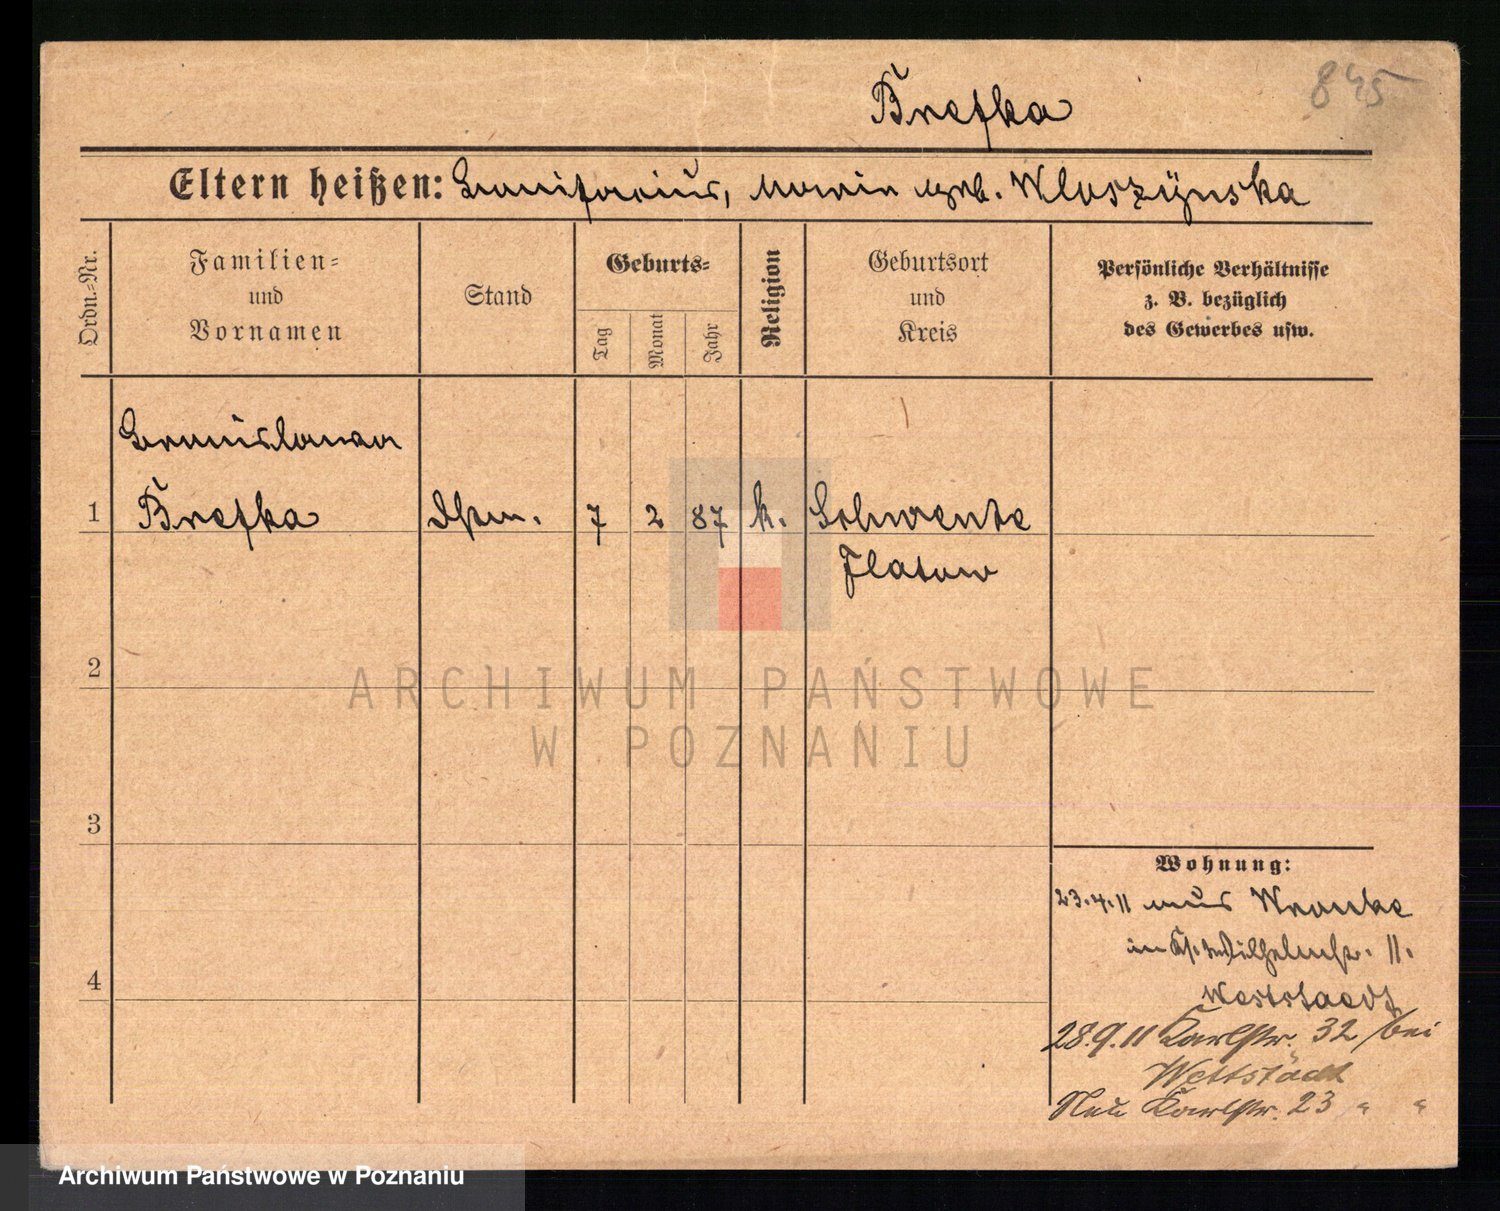 845
Brefka
Eltern heißen: Bonifacius, Maria geb. Wloszynska
Ordn.-Nr.
Familien-
und
Vornamen
Stand
Geburts-
Tag
Monat
Jahr
Religion
Geburtsort
und
Kreis
Persönliche Verhältnisse
z. B. bezüglich
des Gewerbes usw.
Bronislawa
1 Brefka Dstm. 7 2 87 k. Schwente
Flatow
2
3
4
Wohnung:
23.4.11 aus Wronke
in Wilhelmstr. 11.
Weststaedt
28.9.11 Karlstr. 32 bei
Wettstädt
Neu Karlstr. 23 " "
ARCHIWUM PAŃSTWOWE
W POZNANIU
Archiwum Państwowe w Poznaniu